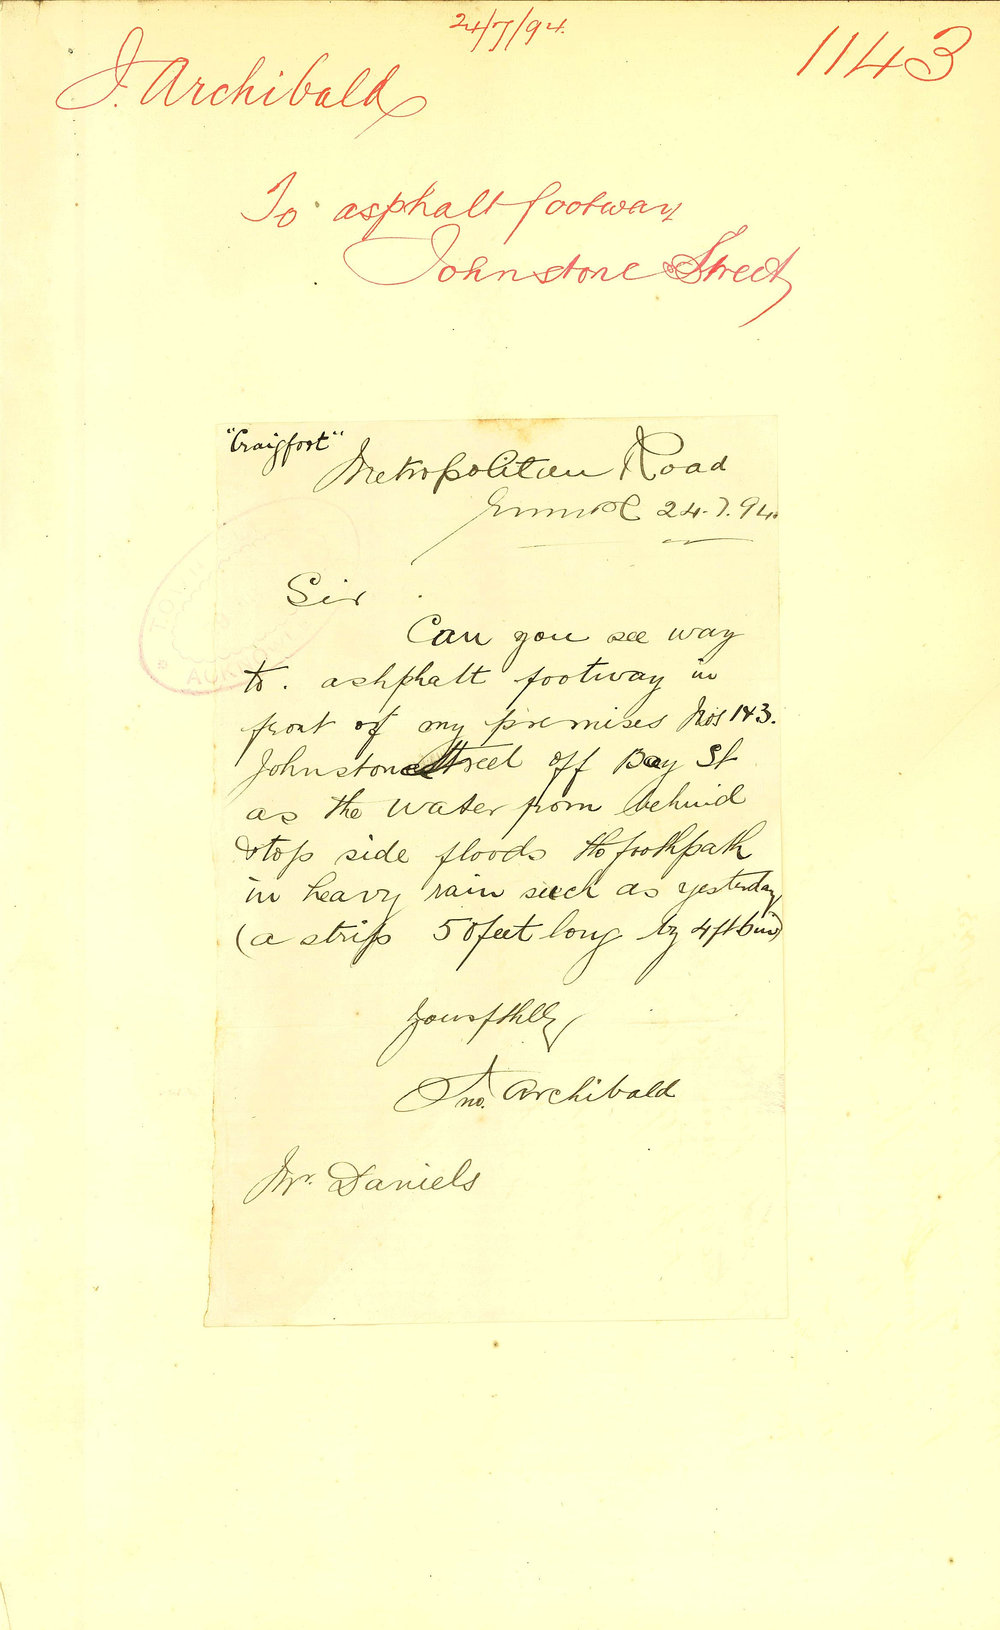 24/7/94.
1143
J. Archibald
To asphalt footway
Johnstone Street
"Craigfoot"
Metropolitan Road
Enmore 24.7.94.
Sir
Can you see way
to. ashphalt footway in
front of my premises Nos 1 & 3.
Johnstone Street off Bay St
as the water from behind
& top side floods the footpath
in heavy rain such as yesterday
(a strip 50 feet long by 4ft 6in)
Yours fthlly
Jno. Archibald
Mr. Daniels
TOWN
ACK